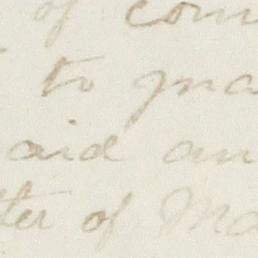 of com
to gra
aid an
ter of Ma